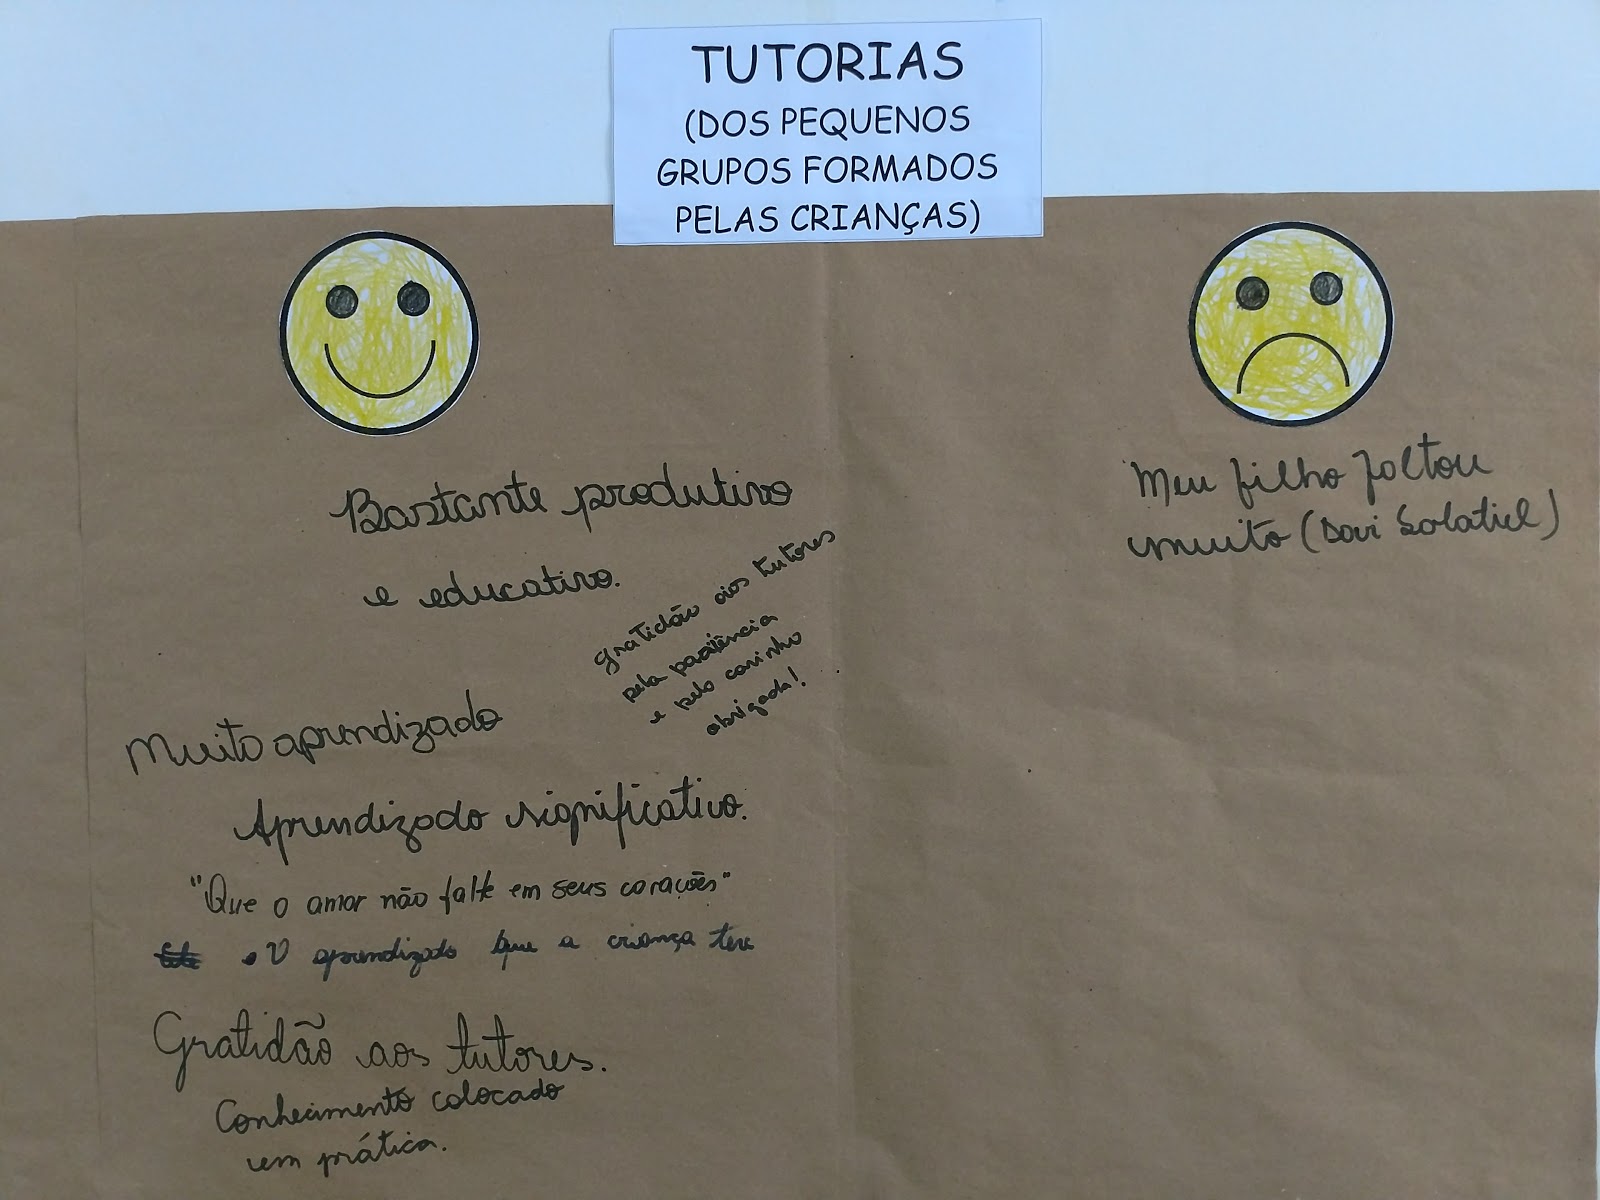 TUTORIAS
(DOS PEQUENOS
GRUPOS FORMADOS
PELAS CRIANÇAS)
Bastante produtivo
e educativo.
gratidão aos tutores
pela paciência
e pelo carinho
obrigada!
Muito aprendizado
Aprendizado significativo.
"Que o amor não falte em seus corações"
O aprendizado que a criança teve
Gratidão aos tutores.
Conhecimento colocado
em prática.
Meu filho faltou
muito (Davi Solatiel)